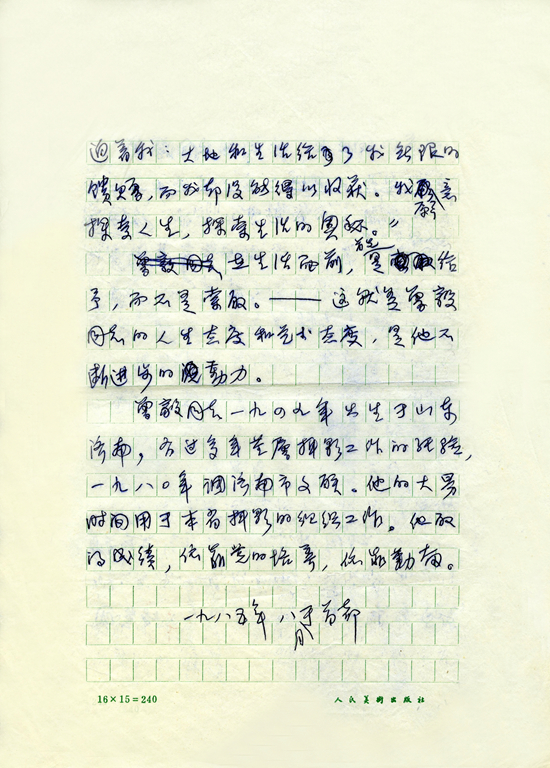 迫着我：大地和生活给了我无限的
馈赠，而我却没能得以收获。我愿意
探索人生，探索生活的奥秘。”
在生活面前，首先是给
予，而不是索取。——这就是曾毅
同志的人生态度和艺术态度，是他不
断进步的动力。
曾毅同志一九四九年出生于山东
济南，有过多年基层摄影工作的经验，
一九八〇年调济南市文联。他的大量
时间用于本省摄影的组织工作。他取
得成绩，依靠党的培养，依靠勤奋。
一九八五年八月于首都
16×15=240
人民美术出版社